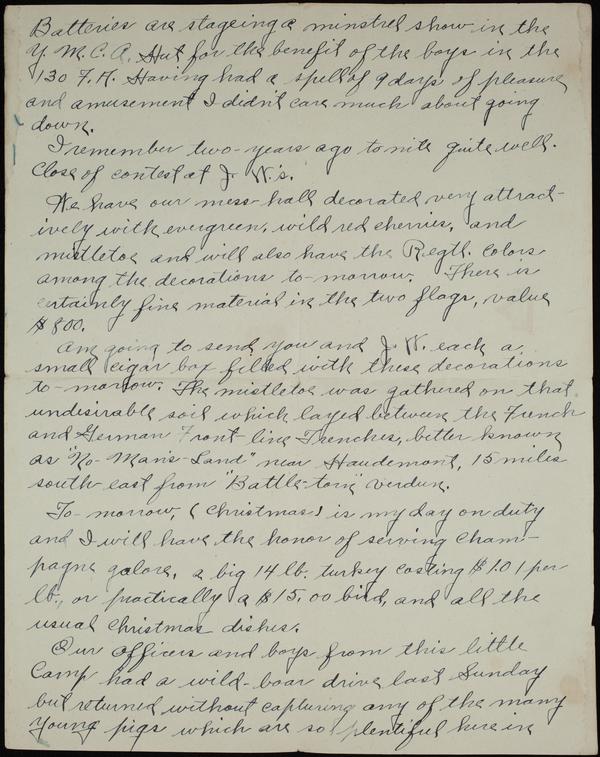 Batteries are stageing a minstrel show in the
Y. M. C. A. Hut for the benefit of the boys in the
130 F.A. Having had a spell of 9 days of pleasure
and amusement I didn't care much about going
down.
I remember two-years ago to nite quite well.
Close of contest at J. W.'s.
We have our mess-hall decorated very attract-
ively with evergreen, wild red cherries, and
mistletoe and will also have the Regtl. Colors
among the decorations to-morrow. There is
certainly fine material in the two flags, value
$800.
Am going to send you and J. W. each a
small cigar box filled with these decorations
to-morrow. The mistletoe was gathered on that
undesirable soil which layed between the French
and German Front-line Trenches, better known
as "No-Man's-Land" near Haudemont, 15 miles
south-east from "Battle-torn" Verdun.
To-morrow, (Christmas) is my day on duty
and I will have the honor of serving Cham-
pagne galore, a big 14 lb. turkey costing $1.01 per
lb., or practically a $15.00 bird, and all the
usual Christmas dishes.
Our officers and boys from this little
Camp had a wild-boar drive last Sunday
but returned without capturing any of the many
young pigs which are so plentiful here in